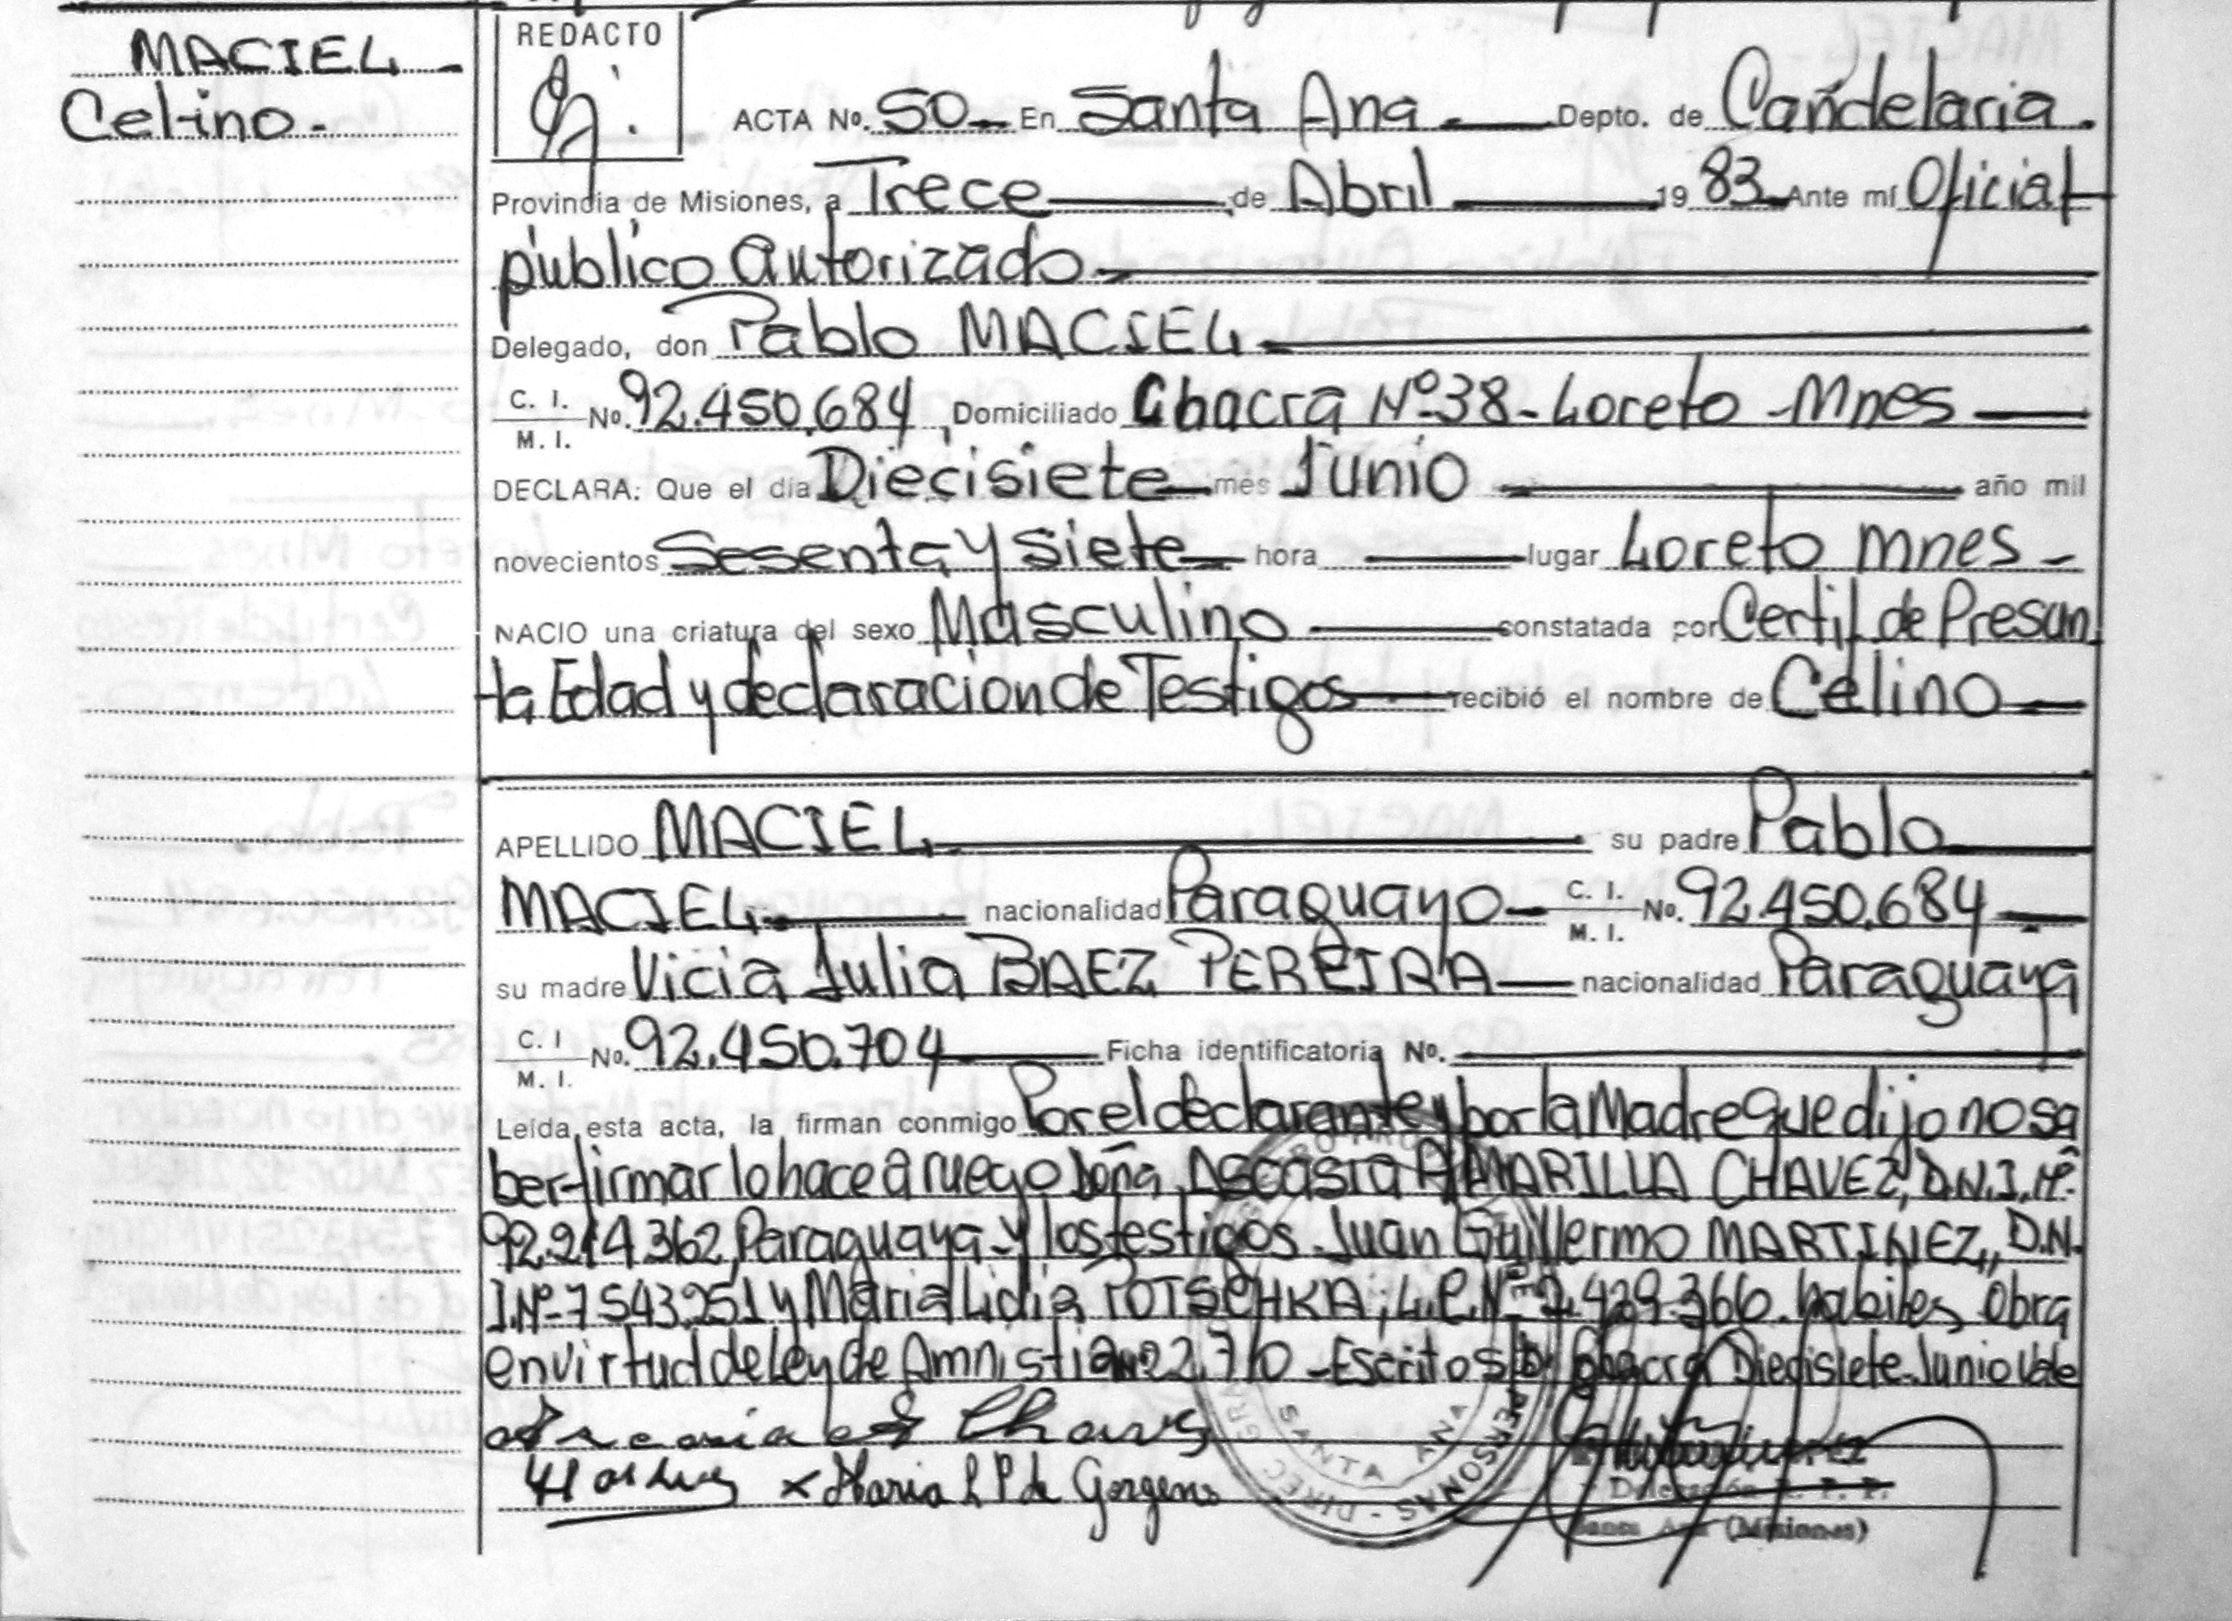 MACIEL
Celino.
REDACTO
ACTA No. 50 En Santa Ana Depto. de Candelaria.
Provincia de Misiones, a Trece de Abril 19 83 Ante mí Oficial
público autorizado
Delegado, don Pablo MACIEL
C. I. M. I. No. 92.450.684, Domiciliado Chacra Nº 38 - Loreto - Mnes
DECLARA: Que el día Diecisiete mes Junio año mil
novecientos Sesenta y siete hora lugar Loreto Mnes -
NACIO una criatura del sexo Masculino constatada por Certif. de Presun
ta Edad y declaracion de Testigos recibió el nombre de Celino
APELLIDO MACIEL su padre Pablo
MACIEL nacionalidad Paraguayo C. I. M. I. No. 92.450.684
su madre Vicia Julia BAEZ PEREIRA nacionalidad Paraguaya
C. I M. I. No. 92.450.704 Ficha identificatoria No.
Leída esta acta, la firman conmigo Por el declarante y por la Madre que dijo no sa
ber firmar lo hace a ruego doña ASCASIA AMARILLA CHAVEZ, D.N.I. Nº
92.214.362, Paraguaya y los testigos Juan Guillermo MARTINEZ, D.N.
I. Nº 7543.251 y Maria Lidia POTSCHKA, L.C. Nº 2.429.366. habiles, Obra
en virtud de Ley de Amnistia 22.710 - Escritos Chacra Diecisiete Junio Vale
Chavez
x Maria L P de Gorgens
DIREC
PERSONAS
SANTA ANA
Delegación R. P. P.
Santa Ana (Misiones)